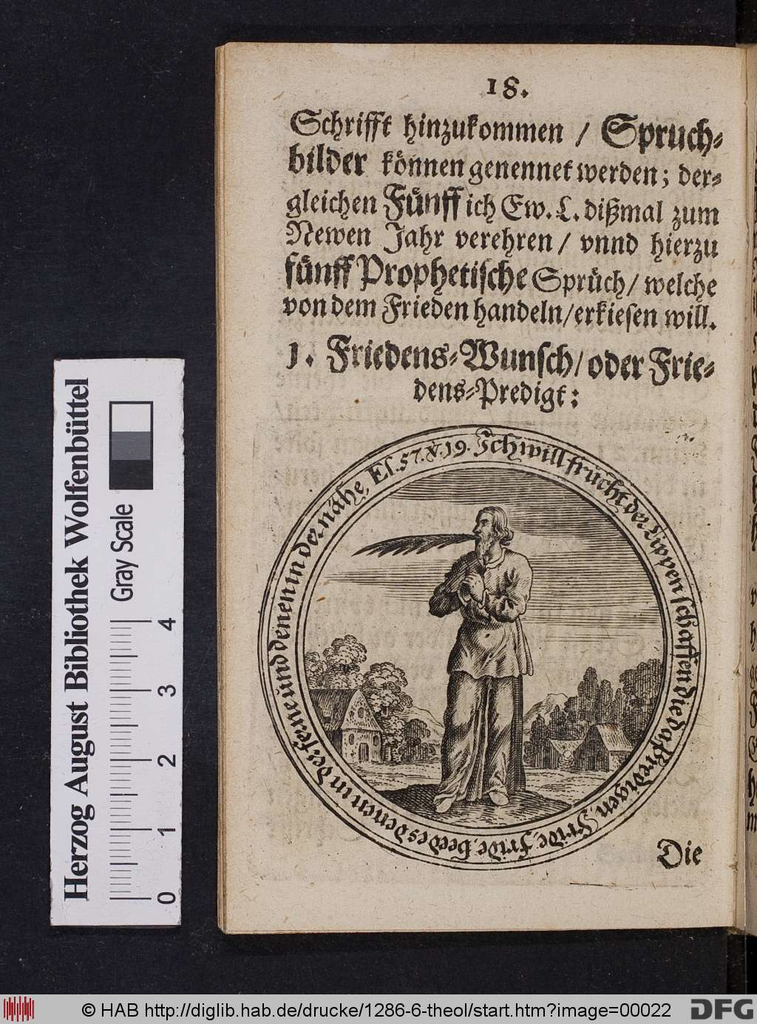 18.
Schrifft hinzukommen / Spruch-
bilder können genennet werden; der-
gleichen Fünff ich Ew. L. dißmal zum
Newen Jahr verehren / vnnd hierzu
fünff Prophetische Sprüch / welche
von dem Frieden handeln / erkiesen will.
1. Friedens-Wunsch / oder Frie-
dens-Predigt:
Es. 57. ℣. 19. Ich will frucht der Lippen schaffen die da Predigen Fride, fride beedes denen in der ferne und denen in der nähe
Die
Herzog August Bibliothek Wolfenbüttel
Gray Scale
0 1 2 3 4
© HAB http://diglib.hab.de/drucke/1286-6-theol/start.htm?image=00022
DFG